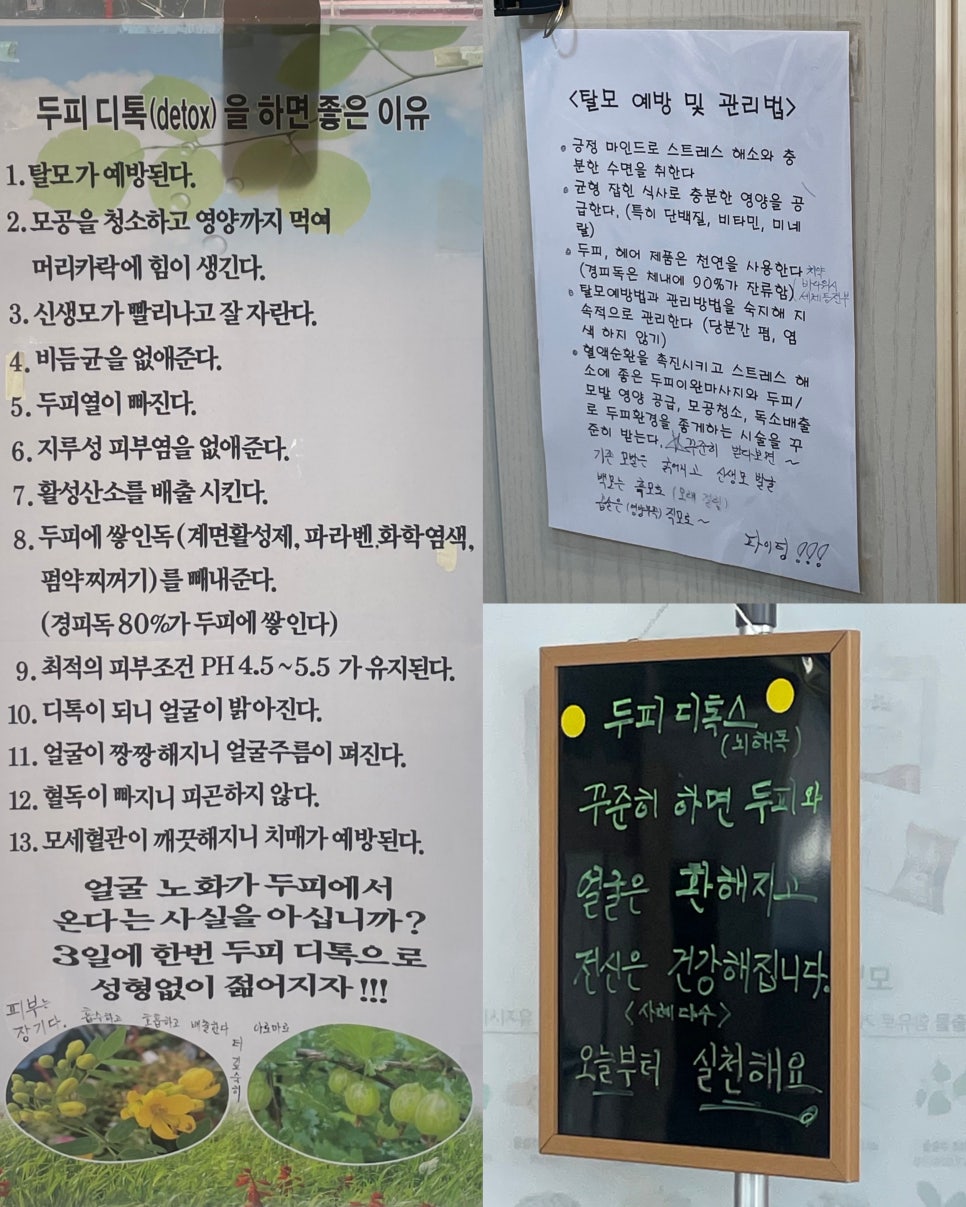 두피 디톡(detox)을 하면 좋은 이유
1. 탈모가 예방된다.
2. 모공을 청소하고 영양까지 먹여
머리카락에 힘이 생긴다.
3. 신생모가 빨리나고 잘 자란다.
4. 비듬균을 없애준다.
5. 두피열이 빠진다.
6. 지루성 피부염을 없애준다.
7. 활성산소를 배출 시킨다.
8. 두피에 쌓인독(계면활성제, 파라벤,화학염색,
펌약찌꺼기)를 빼내준다.
(경피독 80%가 두피에 쌓인다)
9. 최적의 피부조건 PH 4.5~5.5 가 유지된다.
10. 디톡이 되니 얼굴이 밝아진다.
11. 얼굴이 짱짱해지니 얼굴주름이 펴진다.
12. 혈독이 빠지니 피곤하지 않다.
13. 모세혈관이 깨끗해지니 치매가 예방된다.
얼굴 노화가 두피에서
온다는 사실을 아십니까?
3일에 한번 두피 디톡으로
성형없이 젊어지자 !!!
피부는
장기다. 흡수하고 호흡하고 배출한다
<탈모 예방 및 관리법>
• 긍정 마인드로 스트레스 해소와 충
분한 수면을 취한다
• 균형 잡힌 식사로 충분한 영양을 공
급한다. (특히 단백질, 비타민, 미네
랄)
• 두피, 헤어 제품은 천연을 사용한다 치약
(경피독은 체내에 90%가 잔류함)
• 탈모예방법과 관리방법을 숙지해 지
속적으로 관리한다 (당분간 펌, 염
색 하지 않기)
• 혈액순환을 촉진시키고 스트레스 해
소에 좋은 두피이완마사지와 두피/
모발 영양 공급, 모공청소, 독소배출
로 두피환경을 좋게하는 시술을 꾸
준히 받는다. 꾸준히 받다보면 ~
기존 모발은 굵어지고 신생모 발굴
백모는 흑모로 (오래 걸림)
곱슬은 (영양부족) 직모로 ~
파이팅 !!!
두피 디톡스
(뇌해독)
꾸준히 하면 두피와
얼굴은 환해지고
전신은 건강해집니다.
<사례 다수>
오늘부터 실천해요